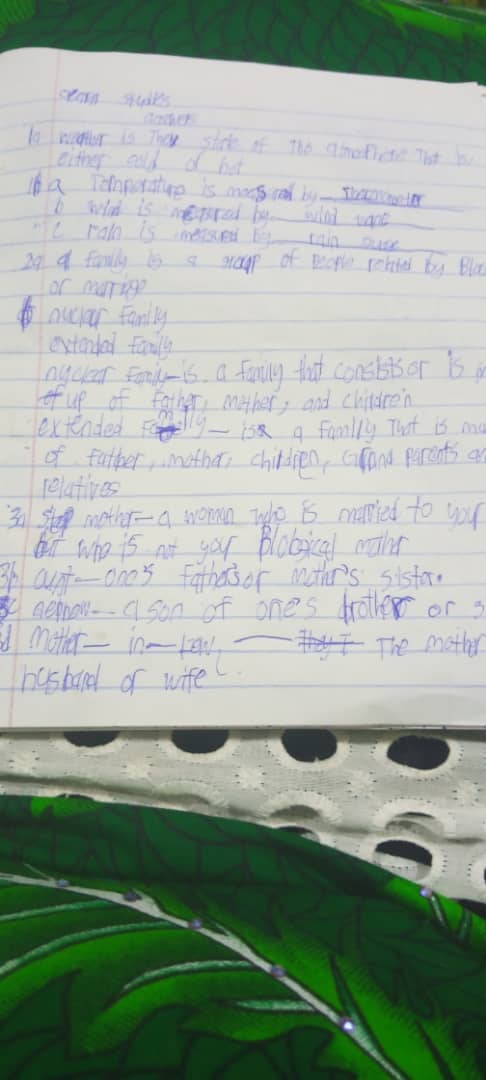 studies
1a weather is The state of The atmosphere That is
either cold or hot
1b a Temperature is measured by Thermometer
b wind is measured by wind vane
c rain is measured by rain
2a a family is a group of people related by Bloo
or marriage
b nuclear family
extended family
nuclear family is a family that consists or is
of up of father, mother, and children
extended family – is a family That is ma
of father, mother, children, Grand parents an
relatives
3a Step mother – a woman who is married to your
but who is not your Biological mother
3b aunt – one's father's or mother's sister.
3c nephew – a son of one's brother or s
d Mother – in – Law – The mother
husband or wife